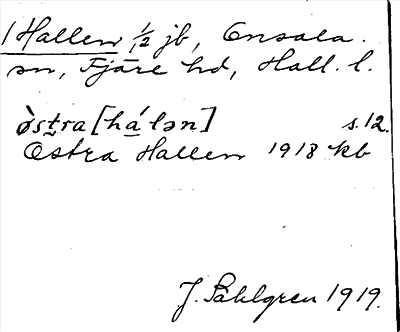 1 Hallen 1/2 jb, Onsala.
sn, Fjäre hd, Hall. l.
ò̀stra [há́lən] s. 12.
Östra Hallen 1918 kb
J. Sahlgren 1919.